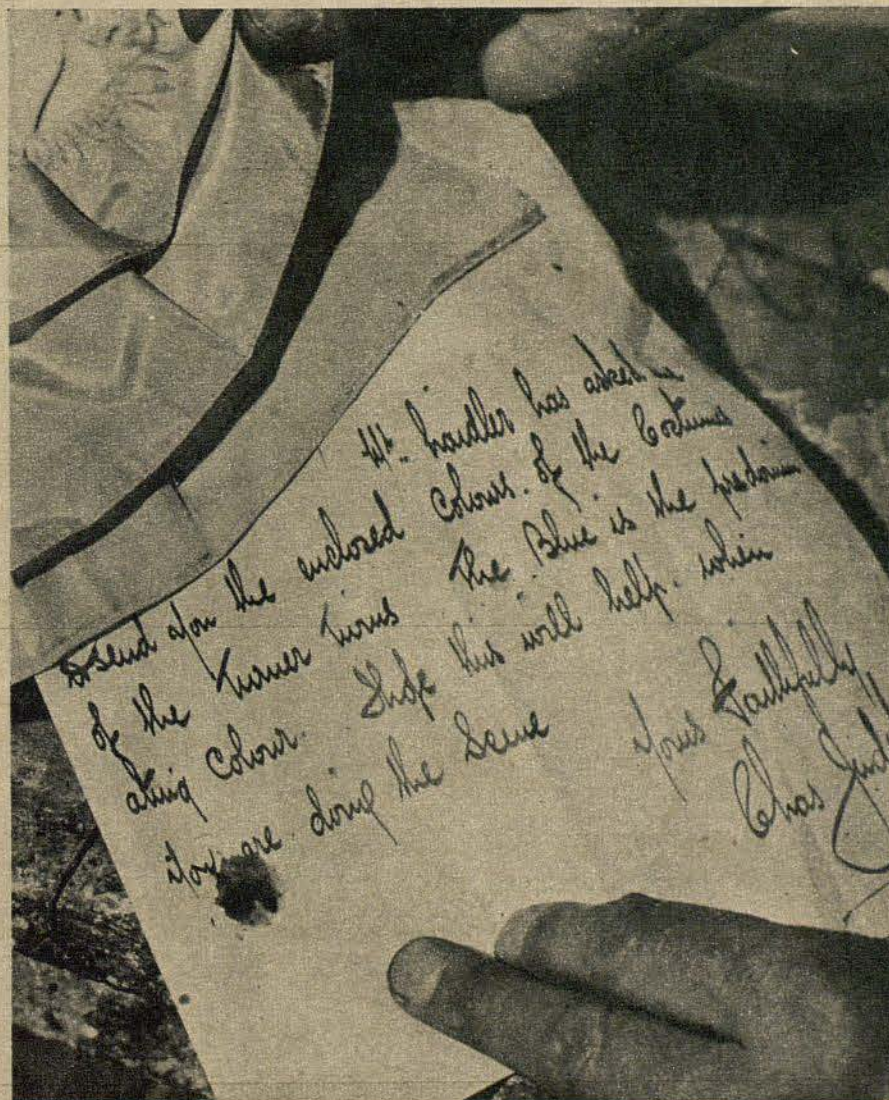 Mr. has asked
to send you the enclosed Colours. of the Costumes
of the Turner Turns The Blue is the predomin
ating Colour. I hope this will help. when
you are. doing the Scene
Yours Faithfully
Chas